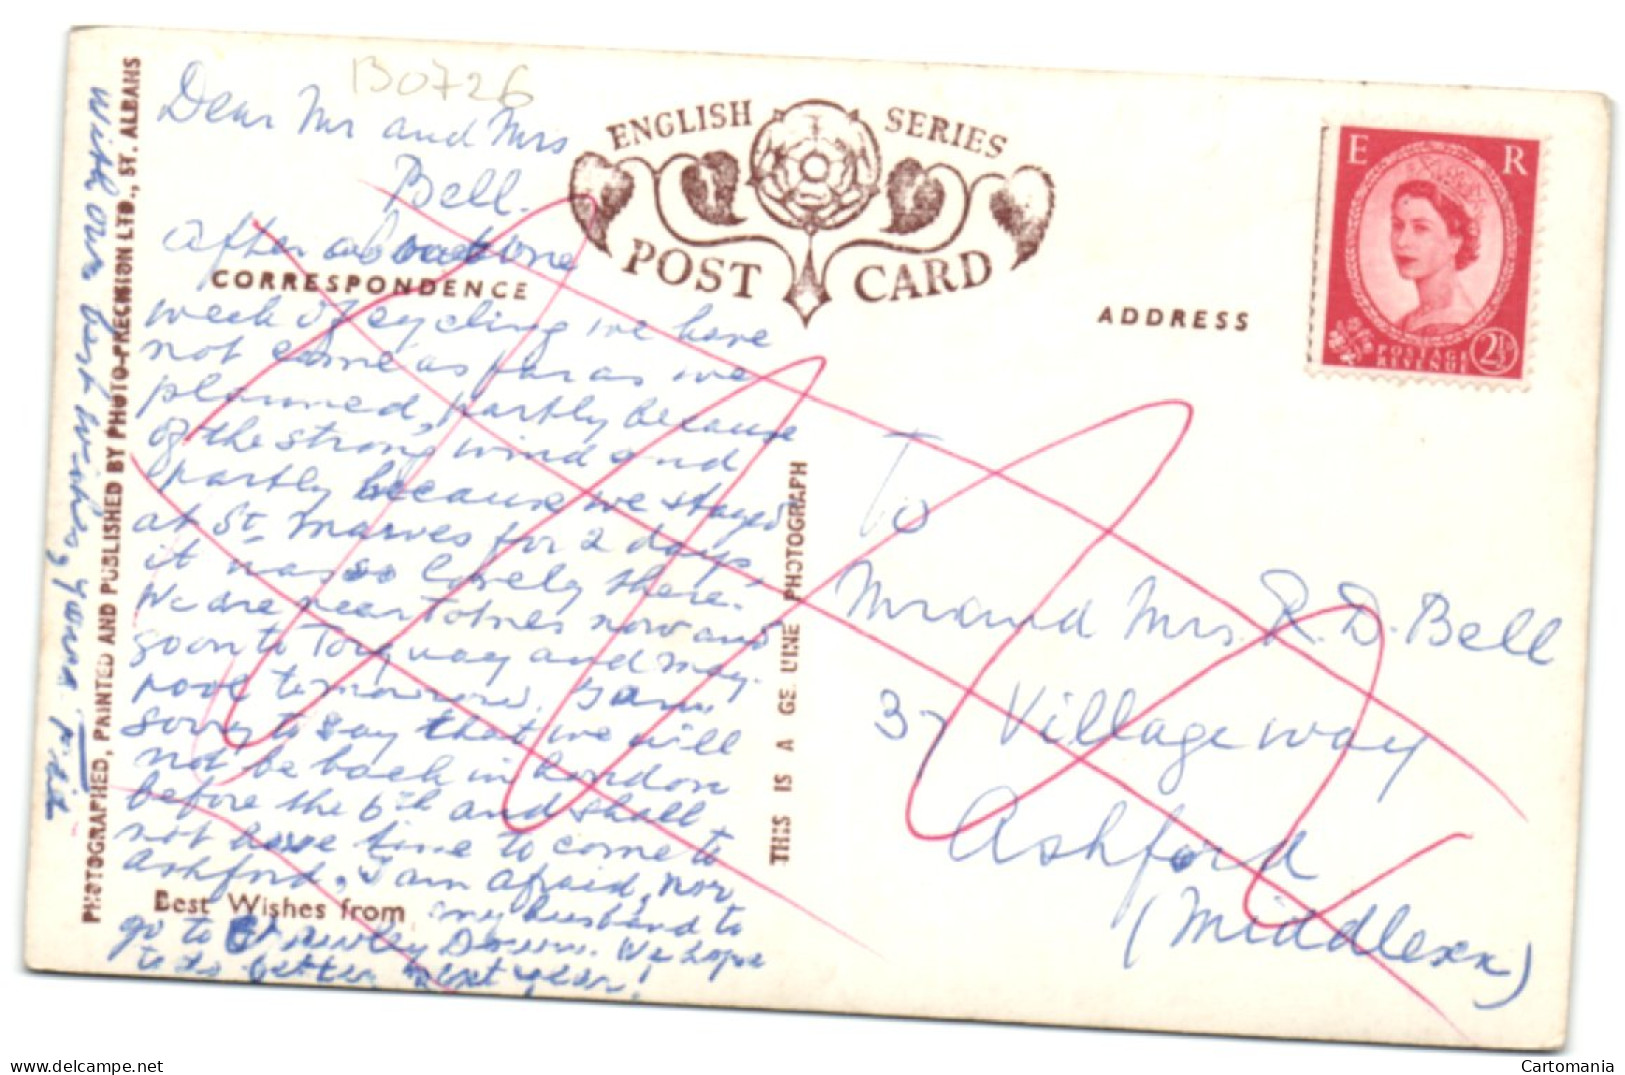 B0726
Dear Mr and Mrs
Bell.
After about one
week of cycling we have
not come as far as we
planned, partly because
of the strong wind and
partly because we stayed
at St. Marves for 2 days,
it was so lovely there.
We are near Totnes now and
goon to Torquay and may
pool tomorrow. I am
sorry to say that we will
not be back in London
before the 6th and shall
not have time to come to
Ashford, I am afraid, nor
my husband to
go to Crawley Down. We hope
to do better next year!
with our best wishes, yours
CORRESPONDENCE
Best Wishes from
PHOTOGRAPHED, PRINTED AND PUBLISHED BY PHOTO-PRECISION LTD., ST. ALBANS
ENGLISH SERIES
POST CARD
THIS IS A GE UINE PHOTOGRAPH
ADDRESS
E R
POSTAGE
REVENUE
2½
To
Mr and Mrs. R. D. Bell
37 Village way
Ashford
(Middlexx)
www.delcampe.net
Cartomania